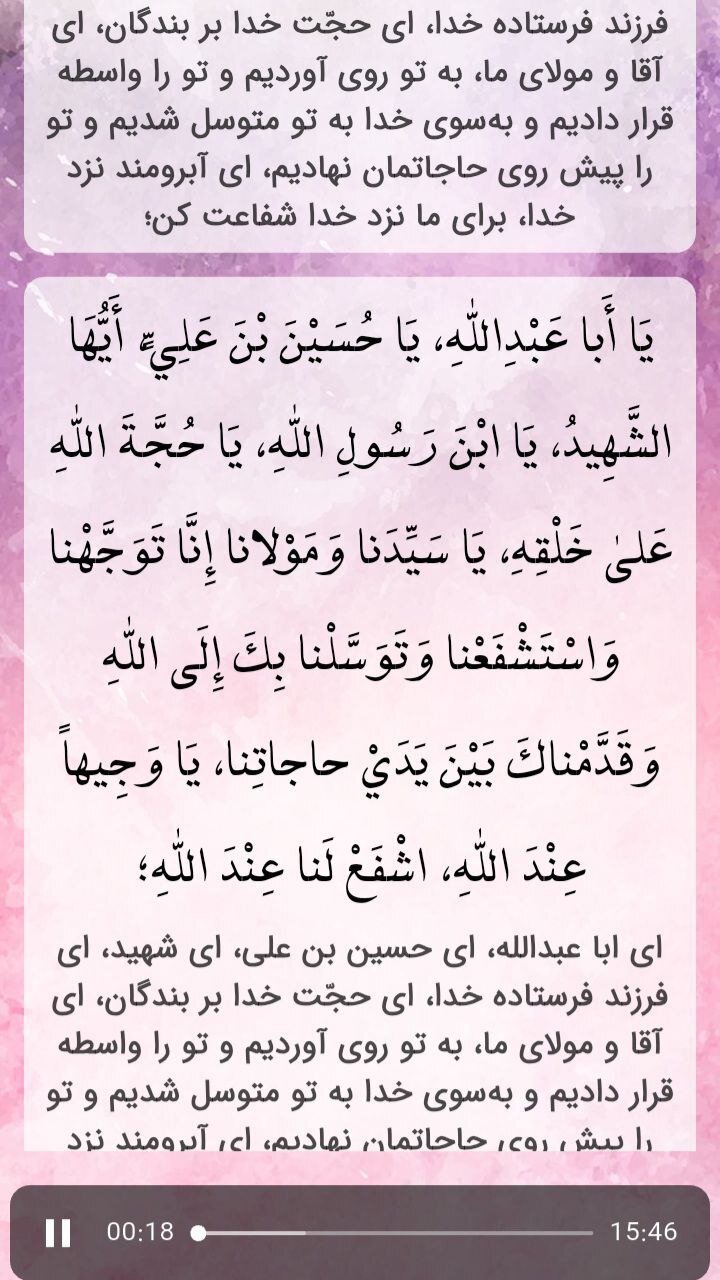 فرزند فرستاده خدا، ای حجّت خدا بر بندگان، ای
آقا و مولای ما، به تو روی آوردیم و تو را واسطه
قرار دادیم و به‌سوی خدا به تو متوسل شدیم و تو
را پیش روی حاجاتمان نهادیم، ای آبرومند نزد
خدا، برای ما نزد خدا شفاعت کن؛
يَا أَبا عَبْدِاللّٰهِ، يَا حُسَيْنَ بْنَ عَلِيٍّ، أَيُّهَا
الشَّهِيدُ، يَا ابْنَ رَسُولِ اللّٰهِ، يَا حُجَّةَ اللّٰهِ
عَلىٰ خَلْقِهِ، يَا سَيِّدَنا وَمَوْلانا إِنَّا تَوَجَّهْنا
وَاسْتَشْفَعْنا وَتَوَسَّلْنا بِكَ إِلَى اللّٰهِ
وَقَدَّمْناكَ بَيْنَ يَدَيْ حاجاتِنا، يَا وَجِيهاً
عِنْدَ اللّٰهِ، اشْفَعْ لَنا عِنْدَ اللّٰهِ؛
ای ابا عبدالله، ای حسین بن علی، ای شهید، ای
فرزند فرستاده خدا، ای حجّت خدا بر بندگان، ای
آقا و مولای ما، به تو روی آوردیم و تو را واسطه
قرار دادیم و به‌سوی خدا به تو متوسل شدیم و تو
را پیش روی حاجاتمان نهادیم، ای آبرومند نزد
00:18 15:46